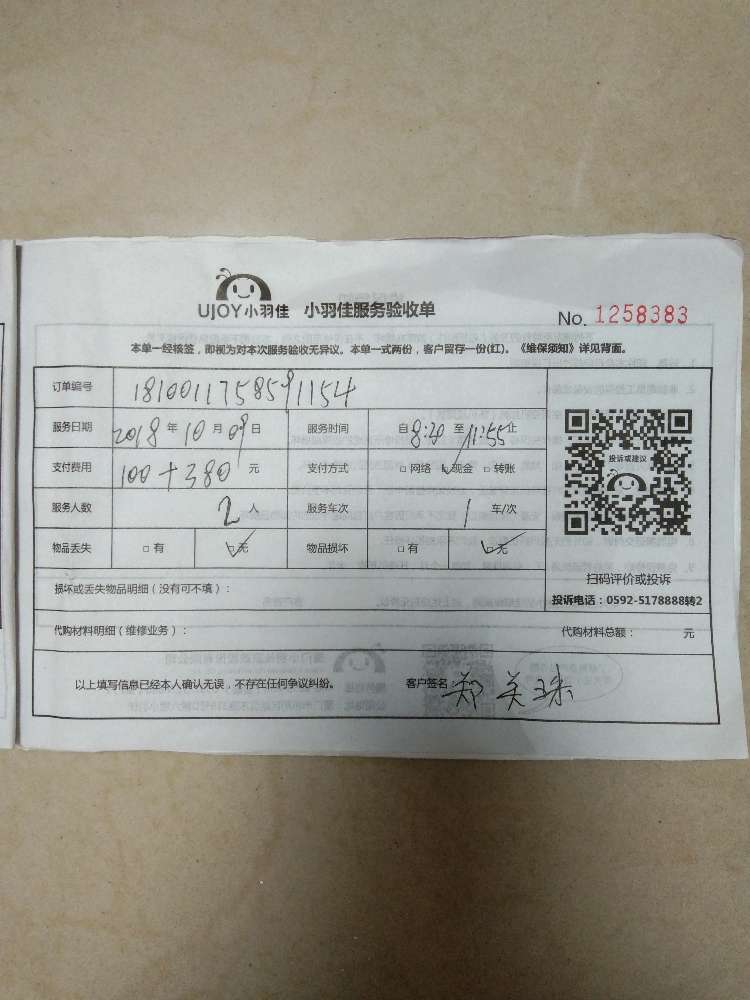 UJOY小羽佳 小羽佳服务验收单
No. 1258383
本单一经核签，即视为对本次服务验收无异议。本单一式两份，客户留存一份(红)。《维保须知》详见背面。
订单编号 1810011758591154
服务日期 2018 年 10 月 09 日 服务时间 自 8:20 至 11:55 止
支付费用 100+380 元 支付方式 □ 网络 ☑ 现金 □ 转账
服务人数 2 人 服务车次 1 车/次
物品丢失 □ 有 ☑ 无 物品损坏 □ 有 ☑ 无
投诉或建议
扫码评价或投诉
投诉电话：0592-5178888转2
损坏或丢失物品明细（没有可不填）：
代购材料明细（维修业务）： 代购材料总额： 元
以上填写信息已经本人确认无误，不存在任何争议纠纷。 客户签名 郑美珠